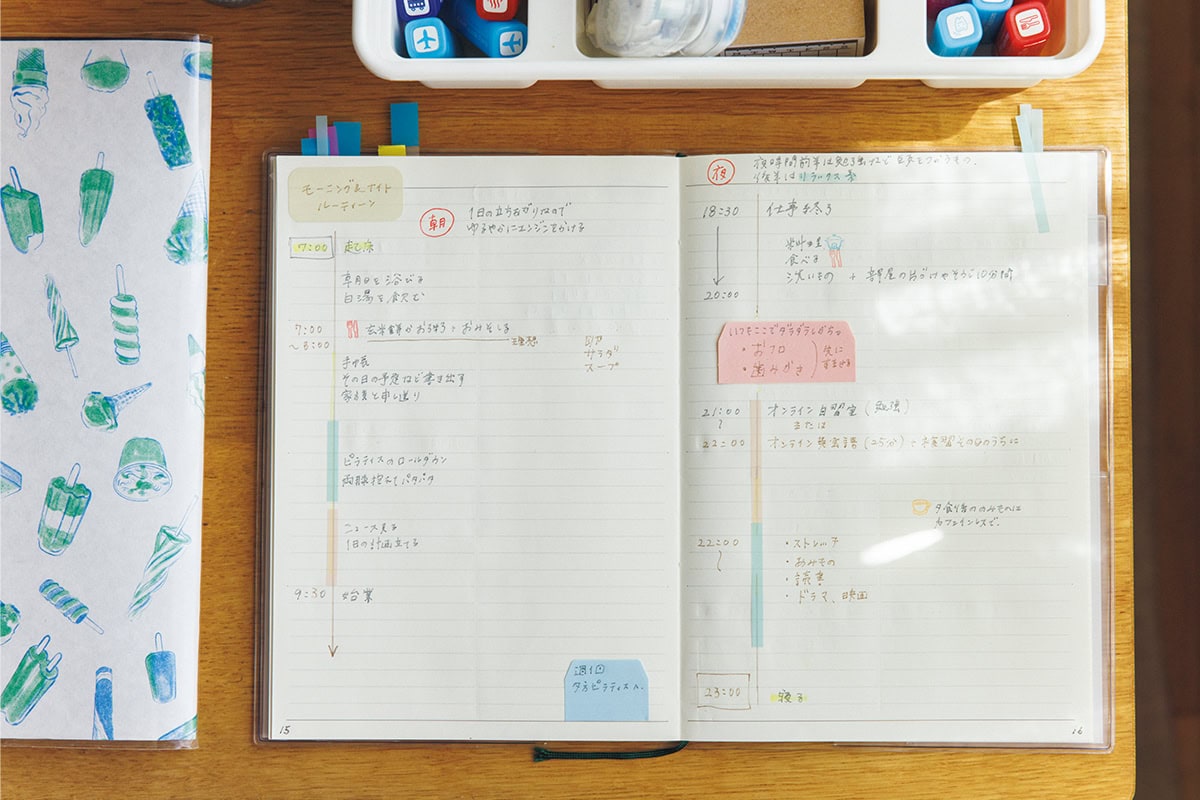 モーニング&ナイト
ルーティーン
朝
1日の立ち上がりなので
ゆるやかにエンジンをかける
7:00 起床
朝日を浴びる
白湯を飲む
7:00
~8:00
玄米餅かお粥 + おみそしる
理想
サラダ
スープ
手帳
その日の予定など書き出す
家族と申し送り
ピラティスのロールダウン
両膝抱えてパタパタ
ニュース見る
1日の計画立てる
9:30 始業
週1回
夕方ピラティスへ
15
夜
夜時間前半は
後半はリラックス系
18:30 仕事終了
食べる
洗いもの + 部屋の片づけやそうじ10分間
20:00
いつもここでダラダラしがち
・おフロ
・歯みがき
先に
すませる
21:00 オンライン自習室(勉強)
または
22:00 オンライン英会話(25分)+復習その日のうちに
夕食後ののみものは
カフェインレスで。
22:00 ・ストレッチ
・あみもの
・読書
・ドラマ、映画
23:00 寝る
16